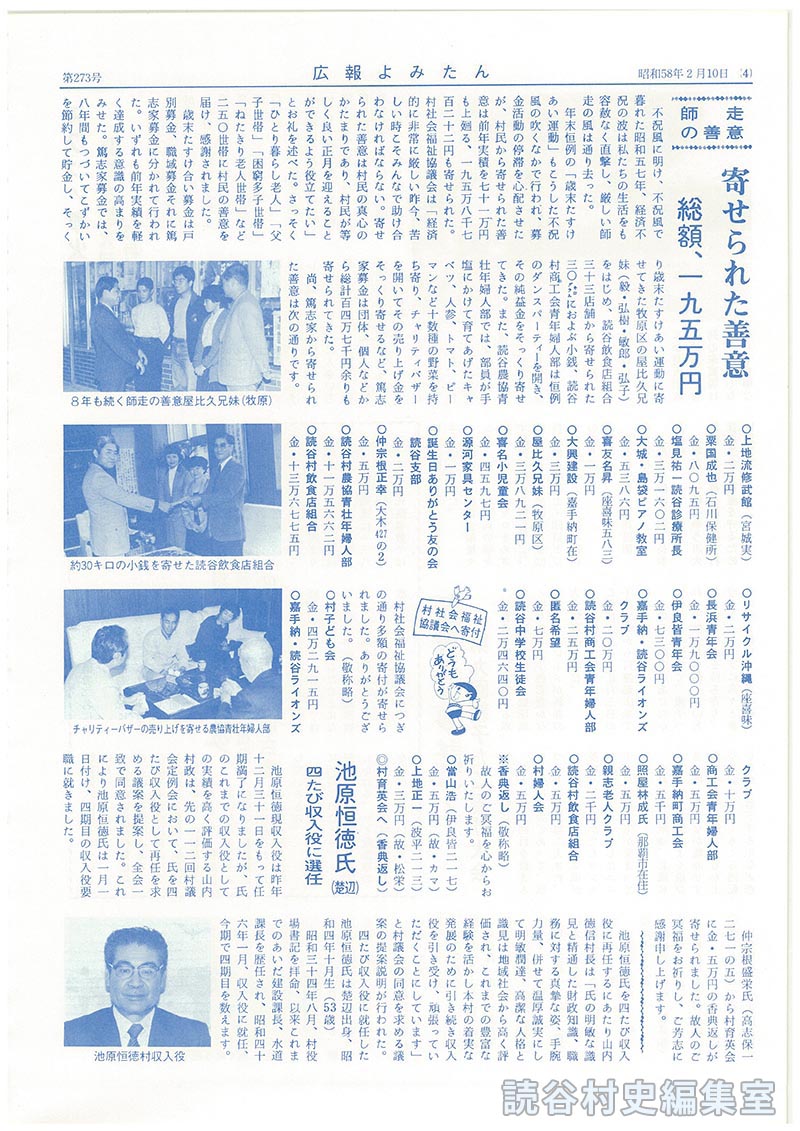 第273号
広報よみたん
昭和58年2月10日 (4)
師走
の善意
寄せられた善意
総額、一九五万円
不況風に明け、不況風で
暮れた昭和五七年、経済不
況の波は私たちの生活をも
容赦なく直撃し、厳しい師
走の風は通り去った。
年末恒例の「歳末たすけ
あい運動」もこうした不況
風の吹くなかで行われ、募
金活動の停滞を心配させた
が、村民から寄せられた善
意は前年実績を七十一万円
も上廻る、一九五万八千七
百二十二円も寄せられた。
村社会福祉協議会は「経済
的に非常に厳しい昨今、苦
しい時こそみんなで助け合
わなければならない。寄せ
られた善意は村民の真心の
かたまりであり、村民が等
しく良い正月を迎えること
ができるよう役立てたい」
とお礼を述べた。さっそく
「ひとり暮らし老人」「父
子世帯」「困窮多子世帯」
「ねたきり老人世帯」など
二五〇世帯に村民の善意を
届け、感謝されました。
歳末たすけ合い募金は戸
別募金、職域募金それに篤
志家募金に分かれて行われ
た。いずれも前年実績を軽
く達成する意識の高まりを
みせた。篤志家募金では、
八年間もつづいてこずかい
を節約して貯金し、そっく
り歳末たすけあい運動に寄
せてきた牧原区の屋比久兄
妹(毅・弘樹・敏郎・弘子)
をはじめ、読谷飲食店組合
三十三店舗から寄せられた
三〇㌔におよぶ小銭、読谷
村商工会青年婦人部は恒例
のダンスパーティーを開き、
その純益金をそっくり寄せ
てきた。また、読谷農協青
壮年婦人部では、部員が手
塩にかけて育てあげたキャ
ベツ、人参、トマト、ピー
マンなど十数種の野菜を持
ち寄り、チャリティバザー
を開いてその売り上げ金を
そっくり寄せるなど、篤志
家募金は団体、個人などか
ら総計百四万七千円余りも
寄せられてきた。
尚、篤志家から寄せられ
た善意は次の通りです。
8年も続く師走の善意屋比久兄妹(牧原)
○上地流修武館(宮城実)
金・二万円
○粟国成也(石川保健所)
金・八〇九五円
○塩見祐一読谷診療所長
金・三万一六〇二円
○大城・島袋ピアノ教室
金・五三八六円
○喜友名昇(座喜味五八三)
金・一万円
○大興建設(嘉手納町在)
金・三万八九二一円
○屋比久兄妹(牧原区)
金・一万円
○喜名小児童会
金・四五九七円
○源河家具センター
金・一万円
○誕生日ありがとう友の会
読谷支部
金・二万円
○仲宗根正幸(大木427の2)
金・五万円
○読谷村農協青壮年婦人部
金・十一万五六六二円
○読谷村飲食店組合
金・十三万六七七五円
約30キロの小銭を寄せた読谷飲食店組合
○リサイクル沖縄(座喜味)
金・二万円
○長浜青年会
金・一万九〇〇〇円
○伊良皆青年会
金・七三〇〇円
○嘉手納・読谷ライオンズ
クラブ
金・二〇万円
○読谷村商工会青年婦人部
金・二五万円
○匿名希望
金・七万円
○読谷中学校生徒会
金・二万四六四〇円
村社会福祉
協議会へ寄付
どうも
ありがとう
村社会福祉協議会につぎ
の通り多額の寄付が寄せら
れました。ありがとうござ
いました。(敬称略)
○村子ども会
金・四万二九一五円
○嘉手納・読谷ライオンズ
チャリティーバザーの売り上げを寄せる農協青壮年婦人部
クラブ
金・十万円
○商工会青年婦人部
金・五万円
○嘉手納町商工会
金・五千円
○照屋林成氏(那覇市在住)
金・五万円
○親志老人クラブ
金・二千円
○読谷村飲食店組合
金・五万円
○村婦人会
金・五万円
※香典返し(敬称略)
故人のご冥福を心からお
祈りいたします。
○當山浩(伊良皆二一七)
金・五万円(故・カマ)
○上地正一(波平二一三)
金・三万円(故・松栄)
◎村育英会へ(香典返し)
仲宗根盛栄氏(高志保一
二七一の五)から村育英会
に金・五万円の香典返しが
寄せられました。故人のご
冥福をお祈りし、ご芳志に
感謝申し上げます。
池原恒徳氏(楚辺)
四たび収入役に選任
池原恒徳現収入役は昨年
十二月三十一日をもって任
期満了になりましたが、氏
のこれまでの収入役として
の実績を高く評価する山内
村政は、先の一一二回村議
会定例会において、氏を四
たび収入役として再任を求
める議案を提案し、全会一
致で同意されました。これ
により池原恒徳氏は一月一
日付け、四期目の収入役要
職に就きました。
池原恒徳氏を四たび収入
役に再任するにあたり山内
徳信村長は「氏の明敏な識
見と精通した財政知識、職
務に対する真摯な姿、手腕
力量、併せて温厚誠実にし
て明敏濶達、高潔な人格と
識見は地域社会から高く評
価され、これまでの豊富な
経験を活かし本村の着実な
発展のために引き続き収入
役を引き受け、頑張ってい
ただくことにしています」
と村議会の同意を求める議
案の提案説明が行われた。
四たび収入役に就任した
池原恒徳氏は楚辺出身、昭
和四年十月生(53歳)
昭和三十四年八月、村役
場書記を拝命、以来これま
でのあいだ建設課長、水道
課長を歴任され、昭和四十
六年一月、収入役に就任、
今期で四期目を数えます。
池原恒徳村収入役
読谷村史編集室